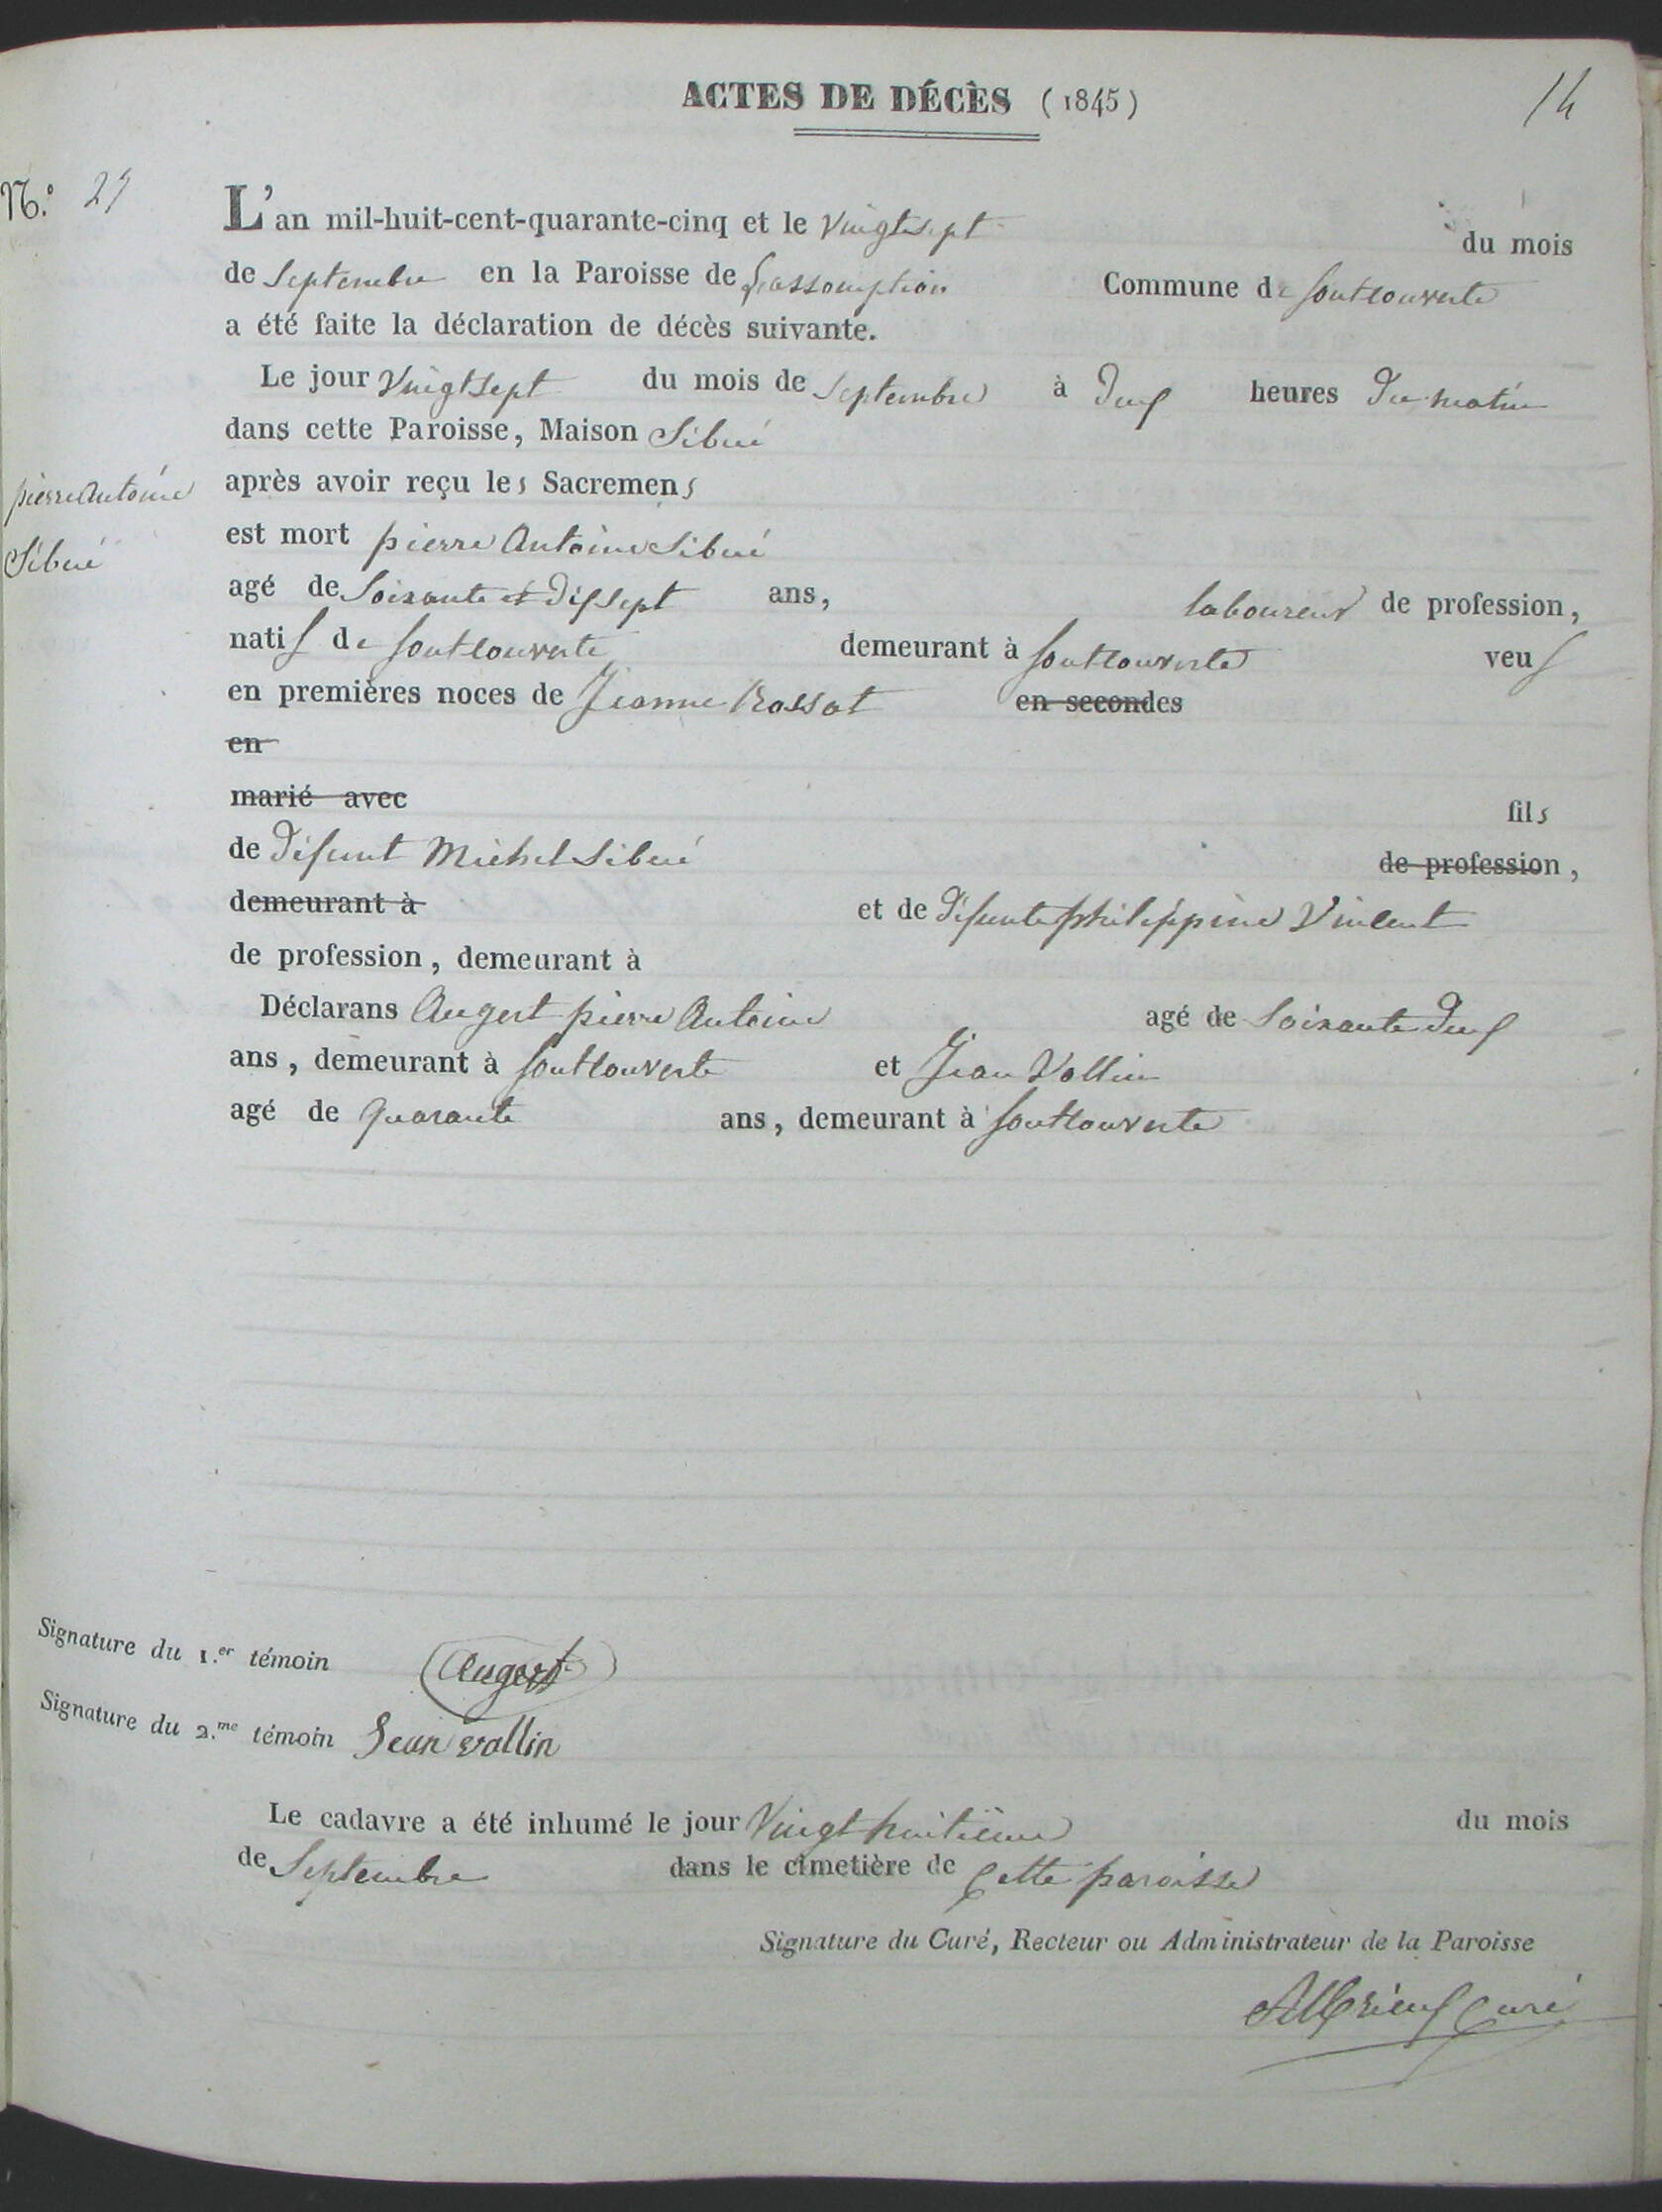 ACTES DE DÉCÈS (1845)
14
N.º 27
L'an mil-huit-cent-quarante-cinq et le Vingtsept du mois
de Septembre en la Paroisse de Lassomption Commune de fontcouverte
a été faite la déclaration de décès suivante.
Le jour Vingtsept du mois de Septembre à Deux heures Du matin
dans cette Paroisse, Maison Sibué
pierre Antoine
Sibué
après avoir reçu les Sacremens
est mort pierre Antoine Sibué
agé de Soixante et Dixsept ans, laboureur de profession,
natif de fontcouverte demeurant à fontcouverte veuf
en premières noces de Jeanne Rossat en secondes
en
marié avec fils
de Défunt Michel Sibué de profession,
demeurant à et de Défunte philippine Vincent
de profession, demeurant à
Déclarans Augert pierre Antoine agé de Soixante Deux
ans, demeurant à fontcouverte et Jean Vollin
agé de quarante ans, demeurant à fontcouverte
Signature du 1.er témoin Augert
Signature du 2.me témoin Jean vollin
Le cadavre a été inhumé le jour Vingt huitième du mois
de Septembre dans le cimetière de Cette paroisse
Signature du Curé, Recteur ou Administrateur de la Paroisse
Curé